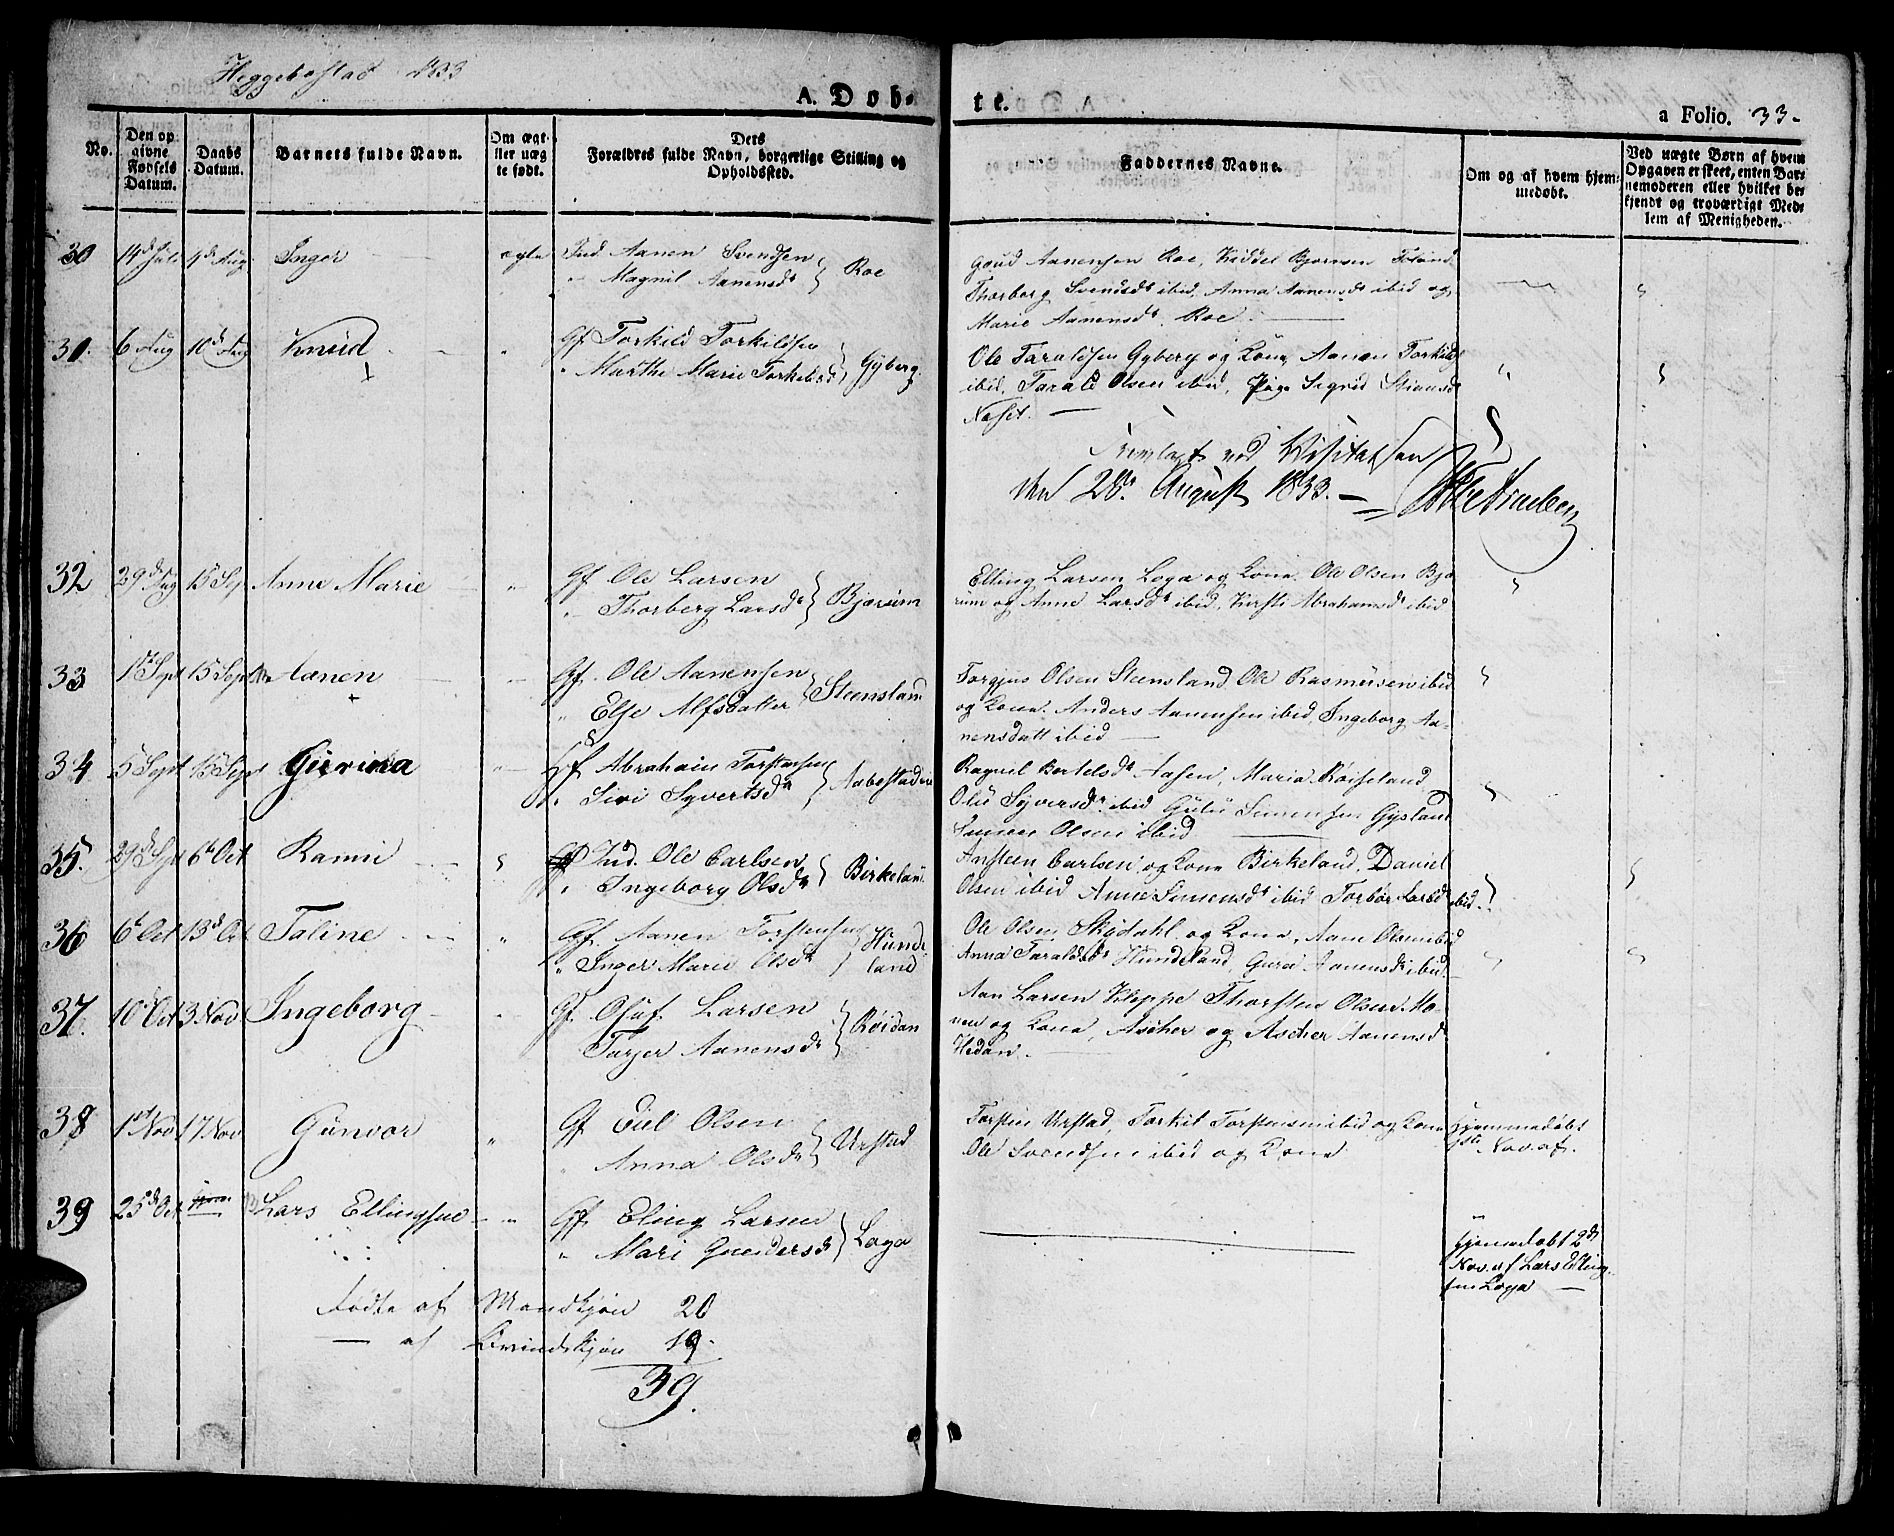 Heggebostad 1833
A. Døb-
te.
a Folio. 33-
No.
Den op
givne
Fødsels
Datum.
Daabs
Datum.
Barnets fulde Navn.
Om ægt-
eller uæg
te født.
Dets
Forældres fulde Navn, borgerlige Stilling og
Opholdssted.
Faddernes Navne.
Om og af hvem hjem-
medøbt.
Ved uægte Børn af hvem
Opgaven er skeet, enten Bar-
nemoderen eller hvilket be-
kjendt og troværdigt Med-
lem af Menigheden.
30 14d Juli 4d Aug Inger ægte Ind. Aanen Svendsen
Magnil Aanensdr } Roe
Aanensen Roe, Kiddel Bjørnsen
Thorborg Svendsdr ibid, Anna Aanensdr ibid og
Marie Aanensdr. Roe.
31. 6 Aug 10d Aug Knud Gf Torkild Torkildsen
Marthe Marie Torkelsdr } Gyberg
Ole Taraldsen Gyberg og Kone, Aanen Torkilds
ibid, Tarald Olsen ibid, Pige Sigrid Stiansdr
Neset.
Fremlagt ved Visitatsen
den 28. August 1833.
32 29d Aug 15 Sep Anne Marie Gf Ole Larsen
Thorberg Larsdr } Bjærum
Elling Larsen Loga og Kone. Ole Olsen Bjæ
rum og Anne Larsdr ibid, Kirsti Abrahamsdr ibid
33 1st Sept 15 Sept Aanen Gf. Ole Aanensen
Else Alfsdatter } Steensland
Torgjus Olsen Steensland Ole Rasmusen ibid
og Kone. Anders Aanensen ibid, Ingeborg Aa-
nensdatt ibid
34 5 Sept 15 Sept Gurina Gf Abraham Torstensen
Siri Syvertsdr } Aabestad
Ragnil Bertelsdr Aasen, Maria Røiseland
Syversdr ibid Simensen Gysland
Simen Olsen ibid
35. 29d Sept 6t Oct Rannei Ind. Ole Carlsen
Ingeborg Olsdr } Birkeland
Ansteen Carlsen og Kone Birkeland, Daniel
Olsen ibid Anne Simensdr ibid Torbør Larsdr ibid.
36 6t Oct 13d Oct Taline Gf. Aanen Torstensen
Inger Marie Olsdr } Hunde
land
Ole Olsen Skeidahl og Kone, Aanen Olsen ibid
Anna Taraldsdr Hundeland, Gura Aanensdr ibid
37. 10 Oct 3 Nov Ingeborg Gf. Oluf Larsen
Tarjer Aanensdr } Røidan
Aan Larsen Kleppe Thorsten Olsen Mo-
nen og Kone, Ascher og Ascher Aanensdr
Hedan.
38 1st Nov 17 Nov Gunvor Gf Eiel Olsen
Anna Olsdr } Urstad
Torsten Urstad, Torkil Torstensen ibid og Kone
Ole Svendsen ibid og Kone
Hjemmedøbt
Nov. af.
39 25d Oct Lars Ellingsen Gf. Eling Larsen
Mari Gundersdr } Loga
Hjemedøbt 2d
Nov. af Lars Elling-
sen Loga
Fødte af Mandkjøn 20
— af Qvindekjøn 19.
39.